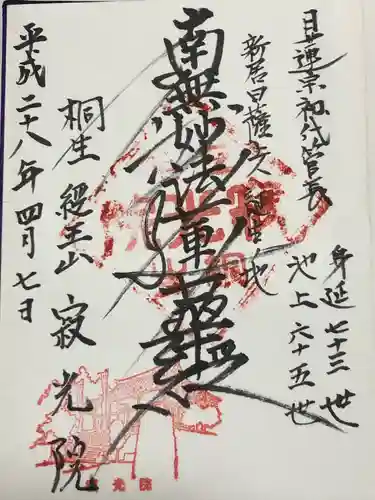 日蓮宗初代管長
身延七十三世
池上六十五世
新居日薩
南無妙法蓮華経
桐生 經王山 寂光院
平成二十八年四月七日
寂光院